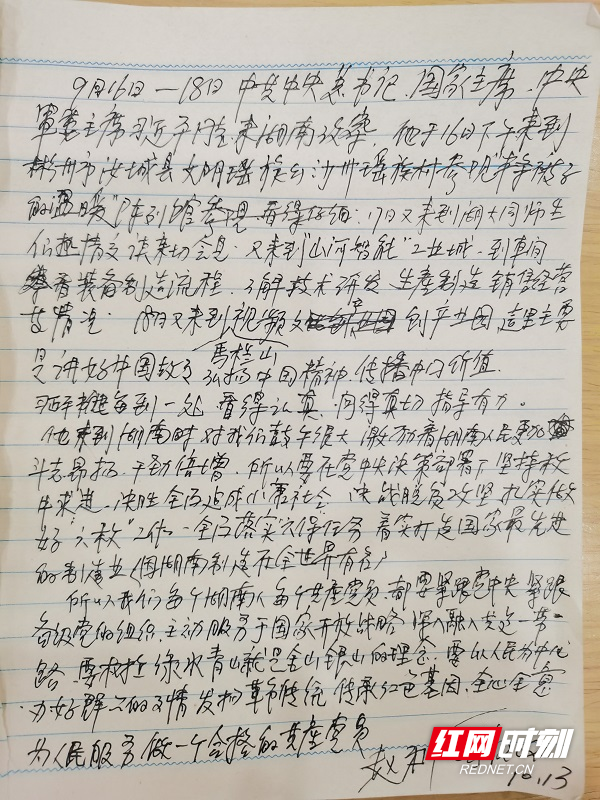 9月16日—18日中共中央总书记、国家主席、中央
军委主席习近平同志来湖南考察,他于16日下午来到
郴州市汝城县文明瑶族乡沙洲瑶族村参观"半条被子
的温暖"陈列馆 看得仔细。17日又来到湖大同师生
们热情交谈亲切会见。又来到"山河智能"工业城,到车间
看装备制造流程,了解技术研发、生产制造销售经营
等情况。18日又来到视频文 到产业园 这里主要
马栏山
是讲好中国故事 弘扬中国精神 传播中国价值
习近平 每到一处 看得认真,问得真切 指导有力。
他来到湖南时对我们鼓午很大 激励着湖南人民更加
斗志昂扬、干劲倍增,所以要在党中央决策部署下坚持稳
中求进,决胜全面建成小康社会,决战脱贫攻坚,扎实做
好"六稳"工作,全面落实六保任务 着实打造国家最先进
的制造业 湖南制造在全世界有名
所以我们每个湖南人每个共产党员,都要紧跟党中央 紧跟
各级党的组织,主动服务于国家开放战略 深入融入 一带一
路 要 绿水青山就是金山银山的理念,要以人民为中心
办好群众的事情 发扬革命传统 传承红色基因,全心全意
为人民服务做一个合格的共产党员
赵
10.13
红网时刻
REDNET.CN